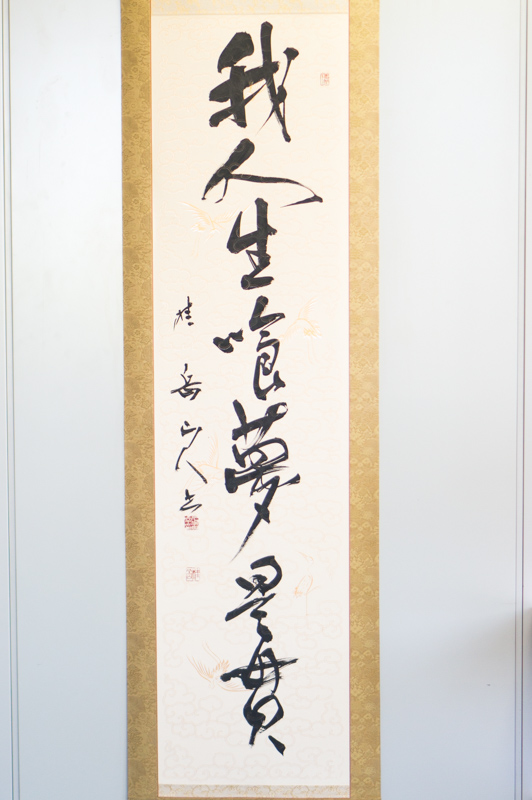 我人生喰夢是貫
桂岳山人